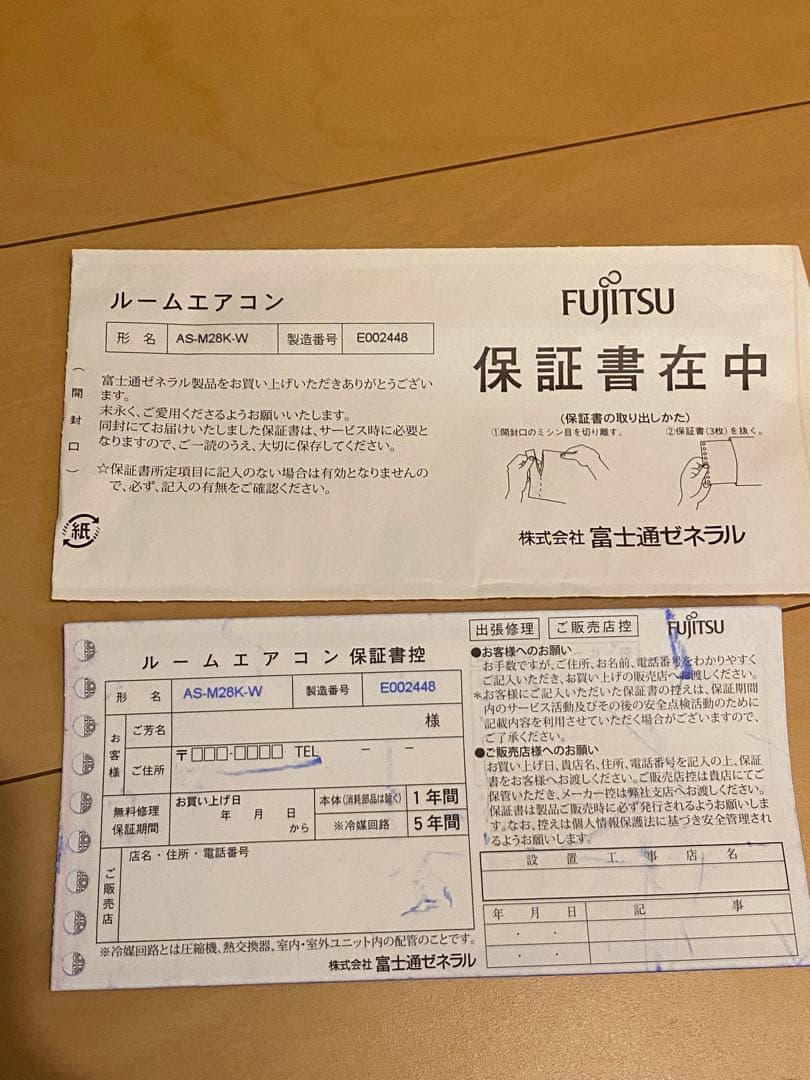 ルームエアコン
形 名 AS-M28K-W 製造番号 E002448
(開封口)
富士通ゼネラル製品をお買い上げいただきありがとうござい
ます。
末永く、ご愛用くださるようお願いいたします。
同封にてお届けいたしました保証書は、サービス時に必要と
なりますので、ご一読のうえ、大切に保存してください。
☆保証書所定項目に記入のない場合は有効となりませんの
で、必ず、記入の有無をご確認ください。
紙
FUJITSU
保証書在中
(保証書の取り出しかた)
①開封口のミシン目を切り離す。 ②保証書(3枚)を抜く。
株式会社 富士通ゼネラル
ルームエアコン 保証書控
形 名 AS-M28K-W 製造番号 E002448
お客様
ご芳名 様
ご住所 〒□□□-□□□□ TEL － －
無料修理
保証期間
お買い上げ日
年 月 日
から
本体(消耗部品は除く) 1年間
※冷媒回路 5年間
ご販売店
店名・住所・電話番号
※冷媒回路とは圧縮機、熱交換器、室内・室外ユニット内の配管のことです。
株式会社 富士通ゼネラル
出張修理 ご販売店控 FUJITSU
●お客様へのお願い
お手数ですが、ご住所、お名前、電話番号をわかりやすく
ご記入いただき、お買い上げの販売店へお渡しください。
*お客様にご記入いただいた保証書の控えは、保証期間
内のサービス活動及びその後の安全点検活動のために
記載内容を利用させていただく場合がございますので、
ご了承ください。
●ご販売店様へのお願い
お買い上げ日、貴店名、住所、電話番号を記入の上、保証
書をお客様へお渡しください。ご販売店控は貴店にてご
保管いただき、メーカー控は弊社支店へお渡しください。
保証書は製品ご販売時に必ず発行されるようお願いしま
す。なお、控えは個人情報保護法に基づき安全管理され
るようお願いします。
設置工事店名
年 月 日 記 事
・ ・
・ ・